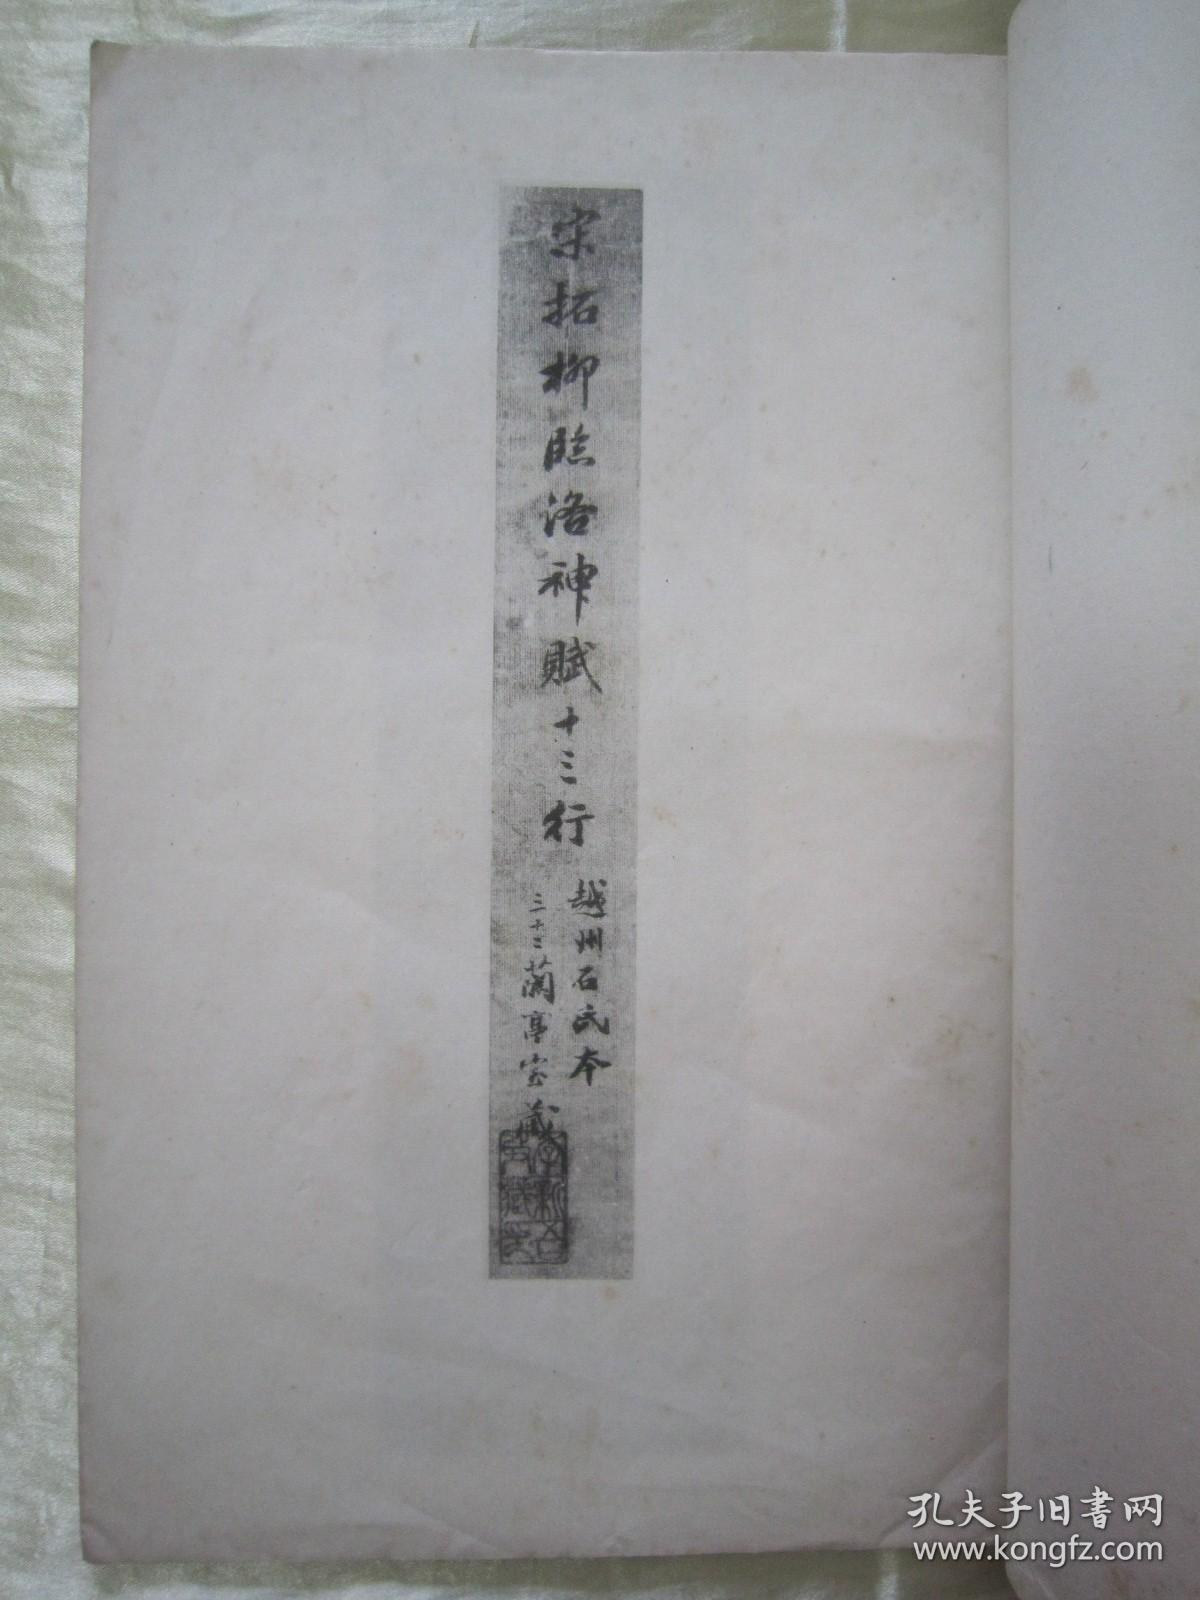 宋拓柳臨洛神賦十三行
越州石氏本
三十二蘭亭室藏
孔夫子旧书网
www.kongfz.com